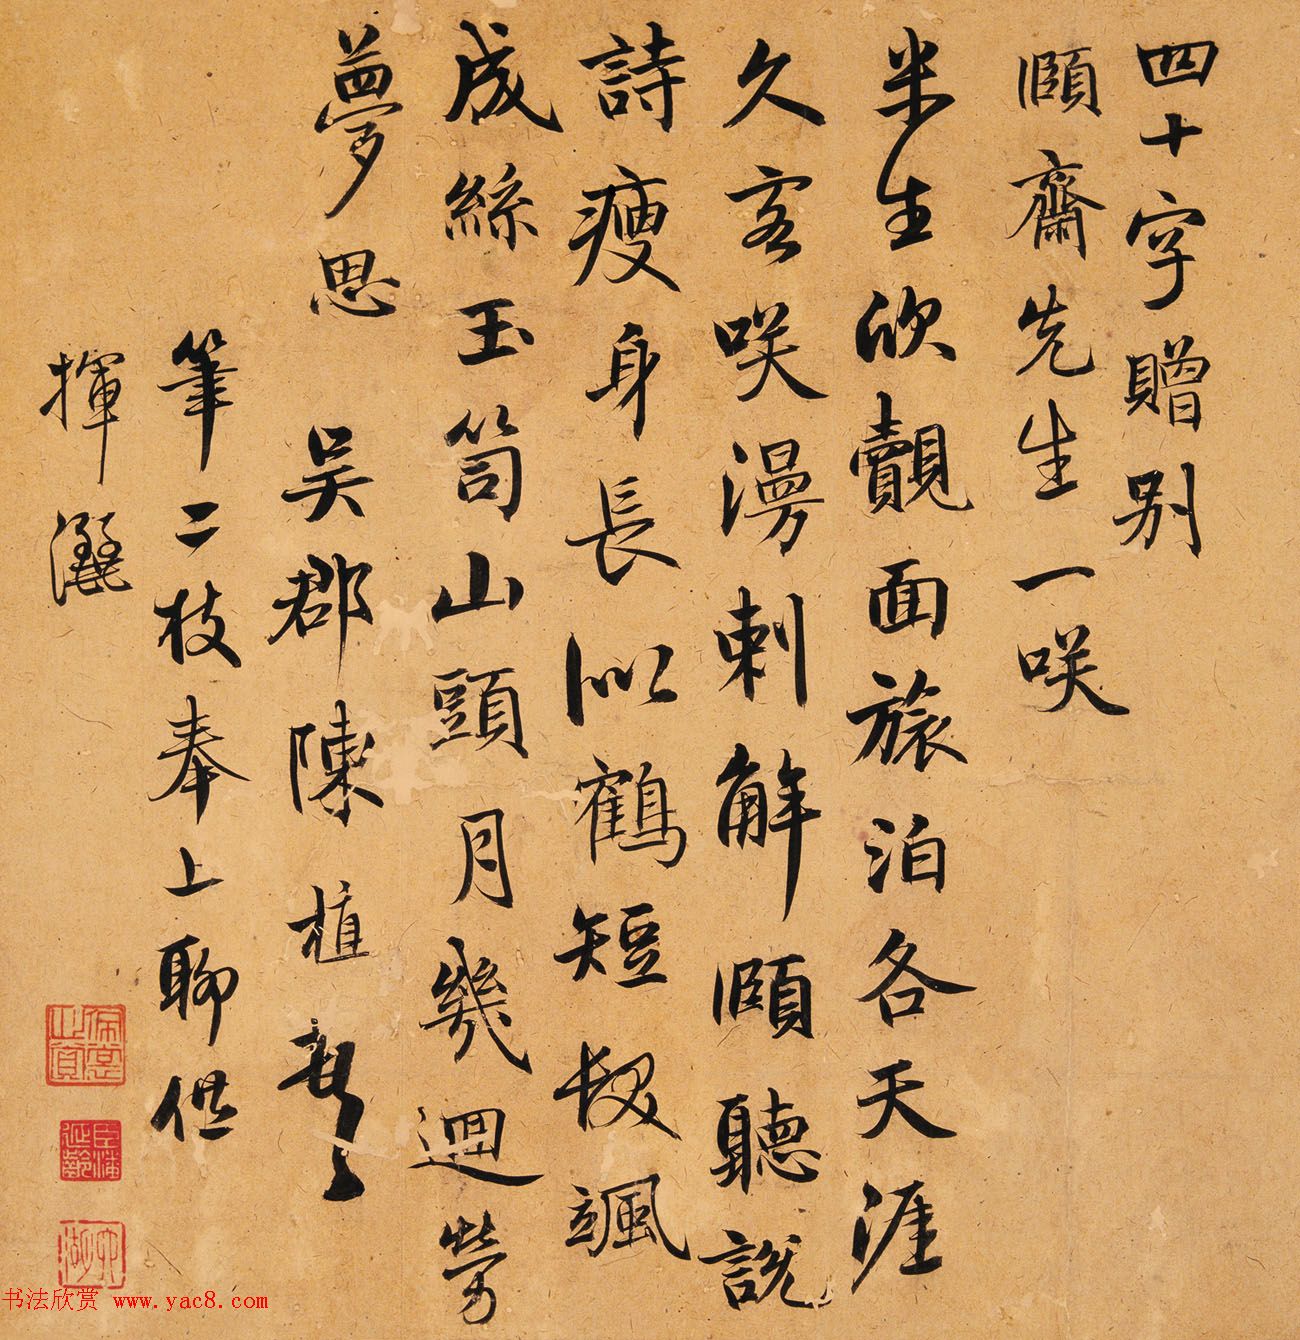 四十字贈别
頤齋先生一咲
半生欣覿面旅泊各天涯
久客咲漫刺解頤聽説
詩瘦身長似鶴短髮颯
成絲玉笥山頭月幾迴勞
夢思 吴郡陳植
筆二枝奉上聊供
揮灑
书法欣赏 www.yac8.com